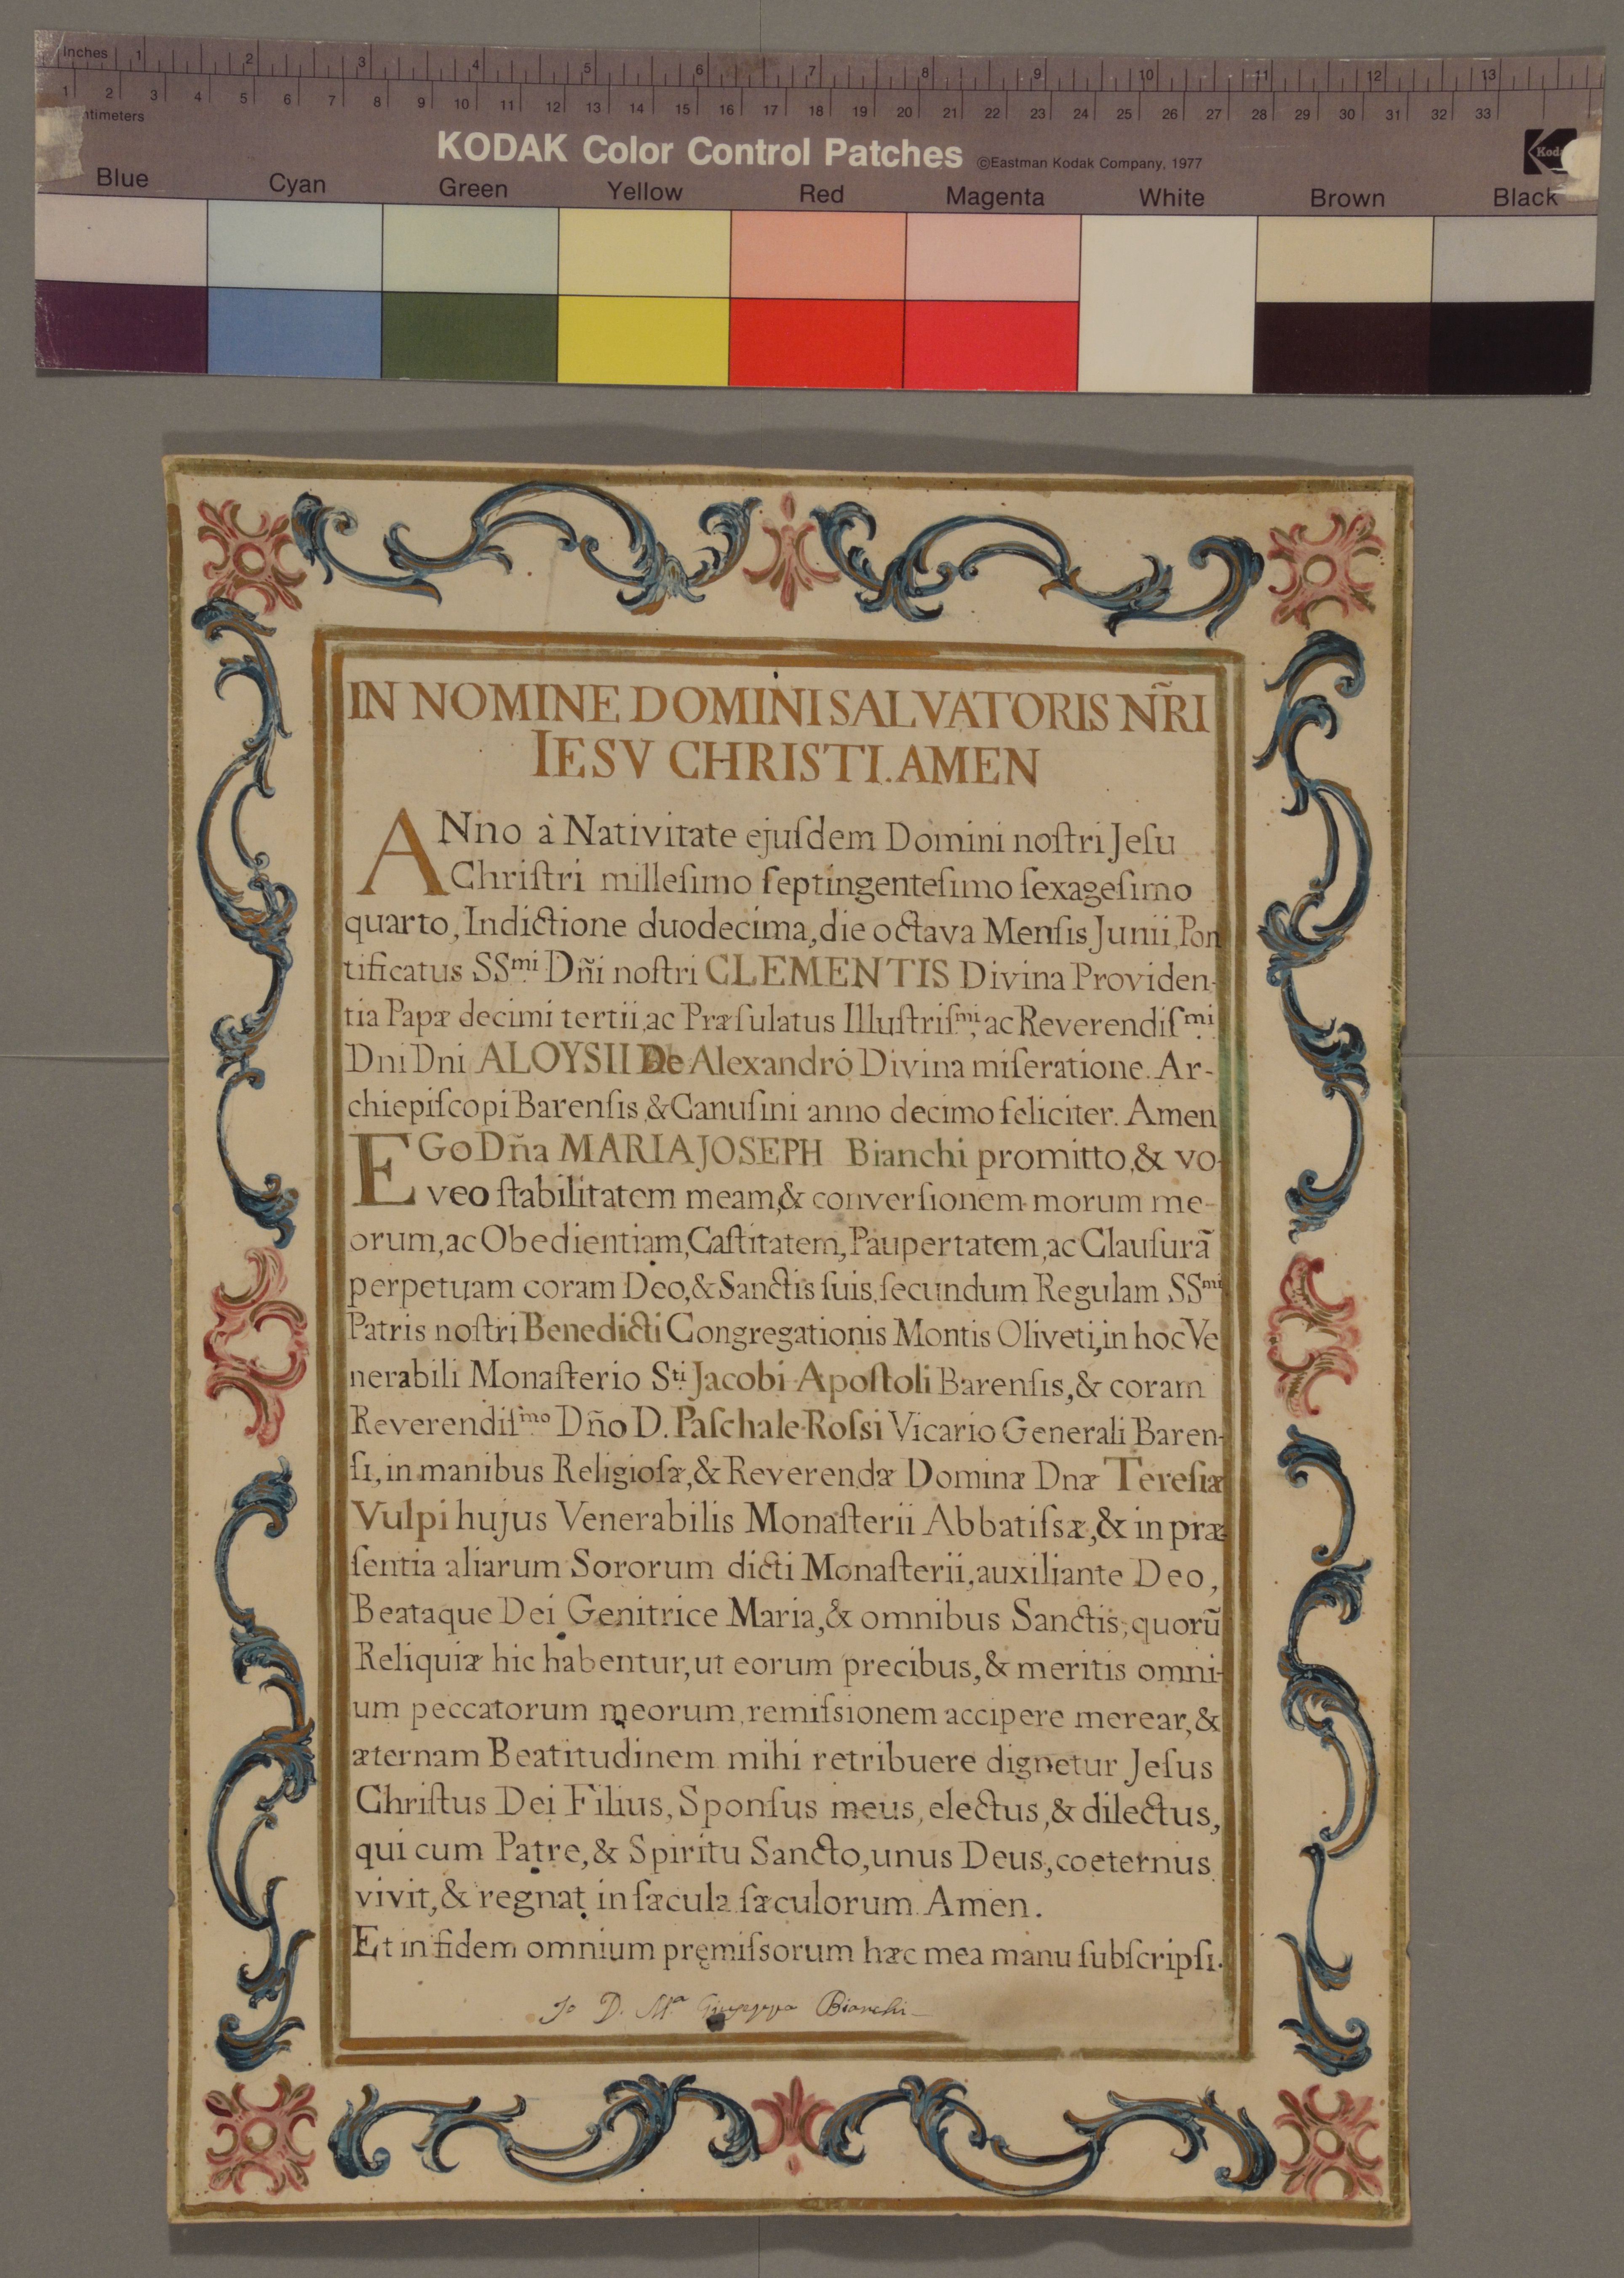 Inches 1 2 3 4 5 6 7 8 9 10 11 12 13
1 2 3 4 5 6 7 8 9 10 11 12 13 14 15 16 17 18 19 20 21 22 23 24 25 26 27 28 29 30 31 32 33
ntimeters
KODAK Color Control Patches ©Eastman Kodak Company, 1977
Blue Cyan Green Yellow Red Magenta White Brown Black
IN NOMINE DOMINI SALVATORIS NR̃I
IESV CHRISTI. AMEN
ANno à Nativitate ejuſdem Domini noſtri Jeſu
Chriſtri milleſimo ſeptingenteſimo ſexageſimo
quarto, Indictione duodecima, die octava Menſis Junii, Pon
tificatus SSmi. Dñi noſtri CLEMENTIS Divina Providen-
tia Papæ decimi tertii, ac Præſulatus Illuſtriſmi, ac Reverendiſmi
Dni Dni ALOYSII De Alexandró Divina miſeratione. Ar-
chiepiſcopi Barenſis, & Canuſini anno decimo feliciter. Amen
EGo Dña MARIA JOSEPH Bianchi promitto, & vo-
veo ſtabilitatem meam, & converſionem morum me-
orum, ac Obedientiam, Caſtitatem, Paupertatem, ac Clauſurã
perpetuam coram Deo, & Sanctis ſuis, ſecundum Regulam SSmi
Patris noſtri Benedicti Congregationis Montis Oliveti, in hoc Ve
nerabili Monaſterio Sti. Jacobi Apoſtoli Barenſis, & coram
Reverendiſmo Dño D. Paſchale Roſsi Vicario Generali Baren-
ſi, in manibus Religioſæ, & Reverendæ Dominæ Dnæ Tereſiæ
Vulpi hujus Venerabilis Monaſterii Abbatiſsæ, & in præ-
ſentia aliarum Sororum dicti Monaſterii, auxiliante Deo,
Beataque Dei Genitrice Maria, & omnibus Sanctis, quorũ
Reliquiæ hic habentur, ut eorum precibus, & meritis omni-
um peccatorum meorum, remiſsionem accipere merear, &
æternam Beatitudinem mihi retribuere dignetur Jeſus
Chriſtus Dei Filius, Sponſus meus, electus, & dilectus,
qui cum Patre, & Spiritu Sancto, unus Deus, coeternus
vivit, & regnat in ſæcula ſæculorum. Amen.
Et in fidem omnium pręmiſsorum hæc mea manu ſubſcripſi.
Io D. Ma Giuseppa Bianchi